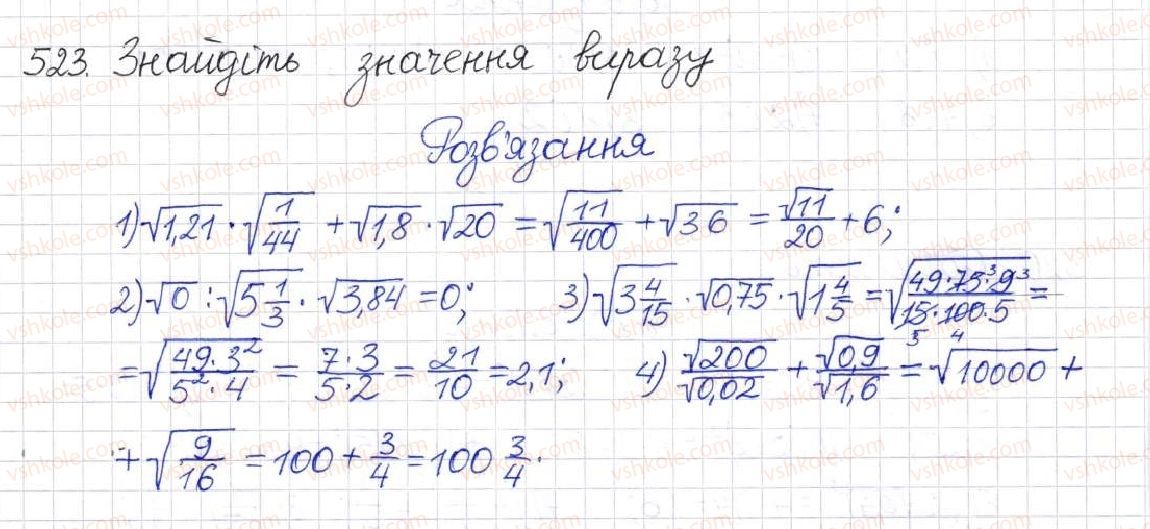 523. Знайдіть значення виразу
Розв'язання
1) √1,21 · √(1/44) + √1,8 · √20 = √(11/400) + √36 = √11/20 + 6;
2) √0 : √(5 1/3) · √3,84 = 0; 3) √(3 4/15) · √0,75 · √(1 4/5) = √((49·75³·9³)/(15·100·5)) =
5 4
= √((49·3²)/(5²·4)) = (7·3)/(5·2) = 21/10 = 2,1; 4) √200/√0,02 + √0,9/√1,6 = √10000 +
+ √(9/16) = 100 + 3/4 = 100 3/4.